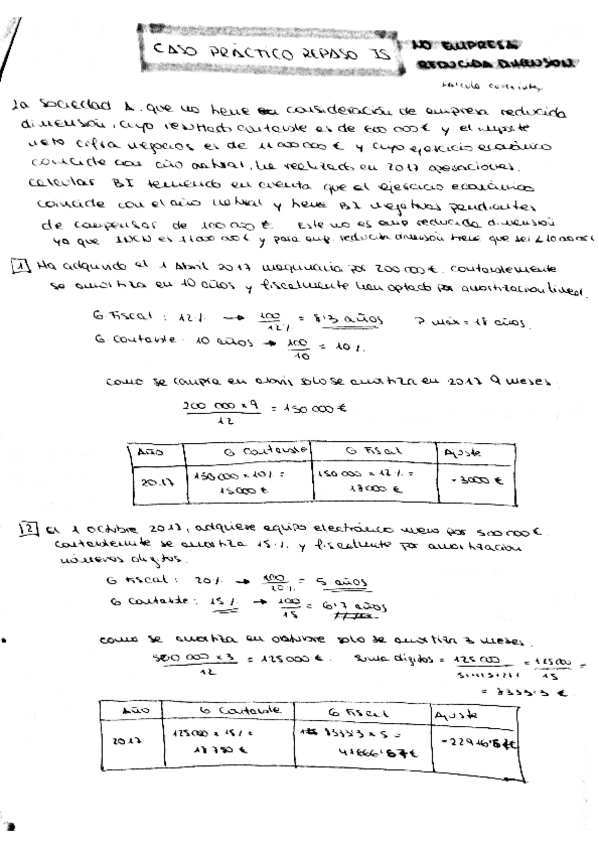 CASO PRÁCTICO REPASO IS
NO EMPRESA
REDUCIDA DIMENSION
La sociedad A, que no tiene consideración de empresa reducida
dimensión, cuyo resultado contable es de 600 000 € y el importe
neto cifra negocios es de 11 000 000 € y cuyo ejercicio económico
coincide con año natural, ha realizado en 2017 operaciones.
Calcular BI teniendo en cuenta que el ejercicio económico
coincide con el año natural y tiene BI negativas pendientes
de compensar de 100 000 €. Este no es emp reducida dimensión
ya que INCN es 11000 000 € y para emp. reducida dimensión tiene que ser
1 Ha adquirido el 1 Abril 2017 maquinaria por 200 000 €. Contablemente
se amortiza en 10 años y fiscalmente han optado por amortización lineal.
G Fiscal: 12% → 100/12% = 8'3 años P. máx = 18 años.
G Contable: 10 años → 100/10 = 10%.
Como se compra en abril solo se amortiza en 2017 9 meses.
200 000 x 9 / 12 = 150 000 €
Año G Contable G Fiscal Ajuste
2017 150 000 x 10% = 15000 € 150 000 x 12% = 18000 € -3000 €
2 El 1 Octubre 2017, adquiere equipo electrónico nuevo por 500 000 €.
Contablemente se amortiza 15% y fiscalmente por amortización
números dígitos.
G Fiscal: 20% → 100/20% = 5 años
G Contable: 15% → 100/15 = 6'7 años
Como se amortiza en octubre solo se amortiza 3 meses.
500 000 x 3 / 12 = 125 000 €. Suma dígitos = 125 000 / 5+4+3+2+1 = 125000 / 15 =
= 8333'3 €
Año G Contable G Fiscal Ajuste
2017 125000 x 15% = 18 750 € 8333'3 x 5 = 41666'67 € -22916'67€